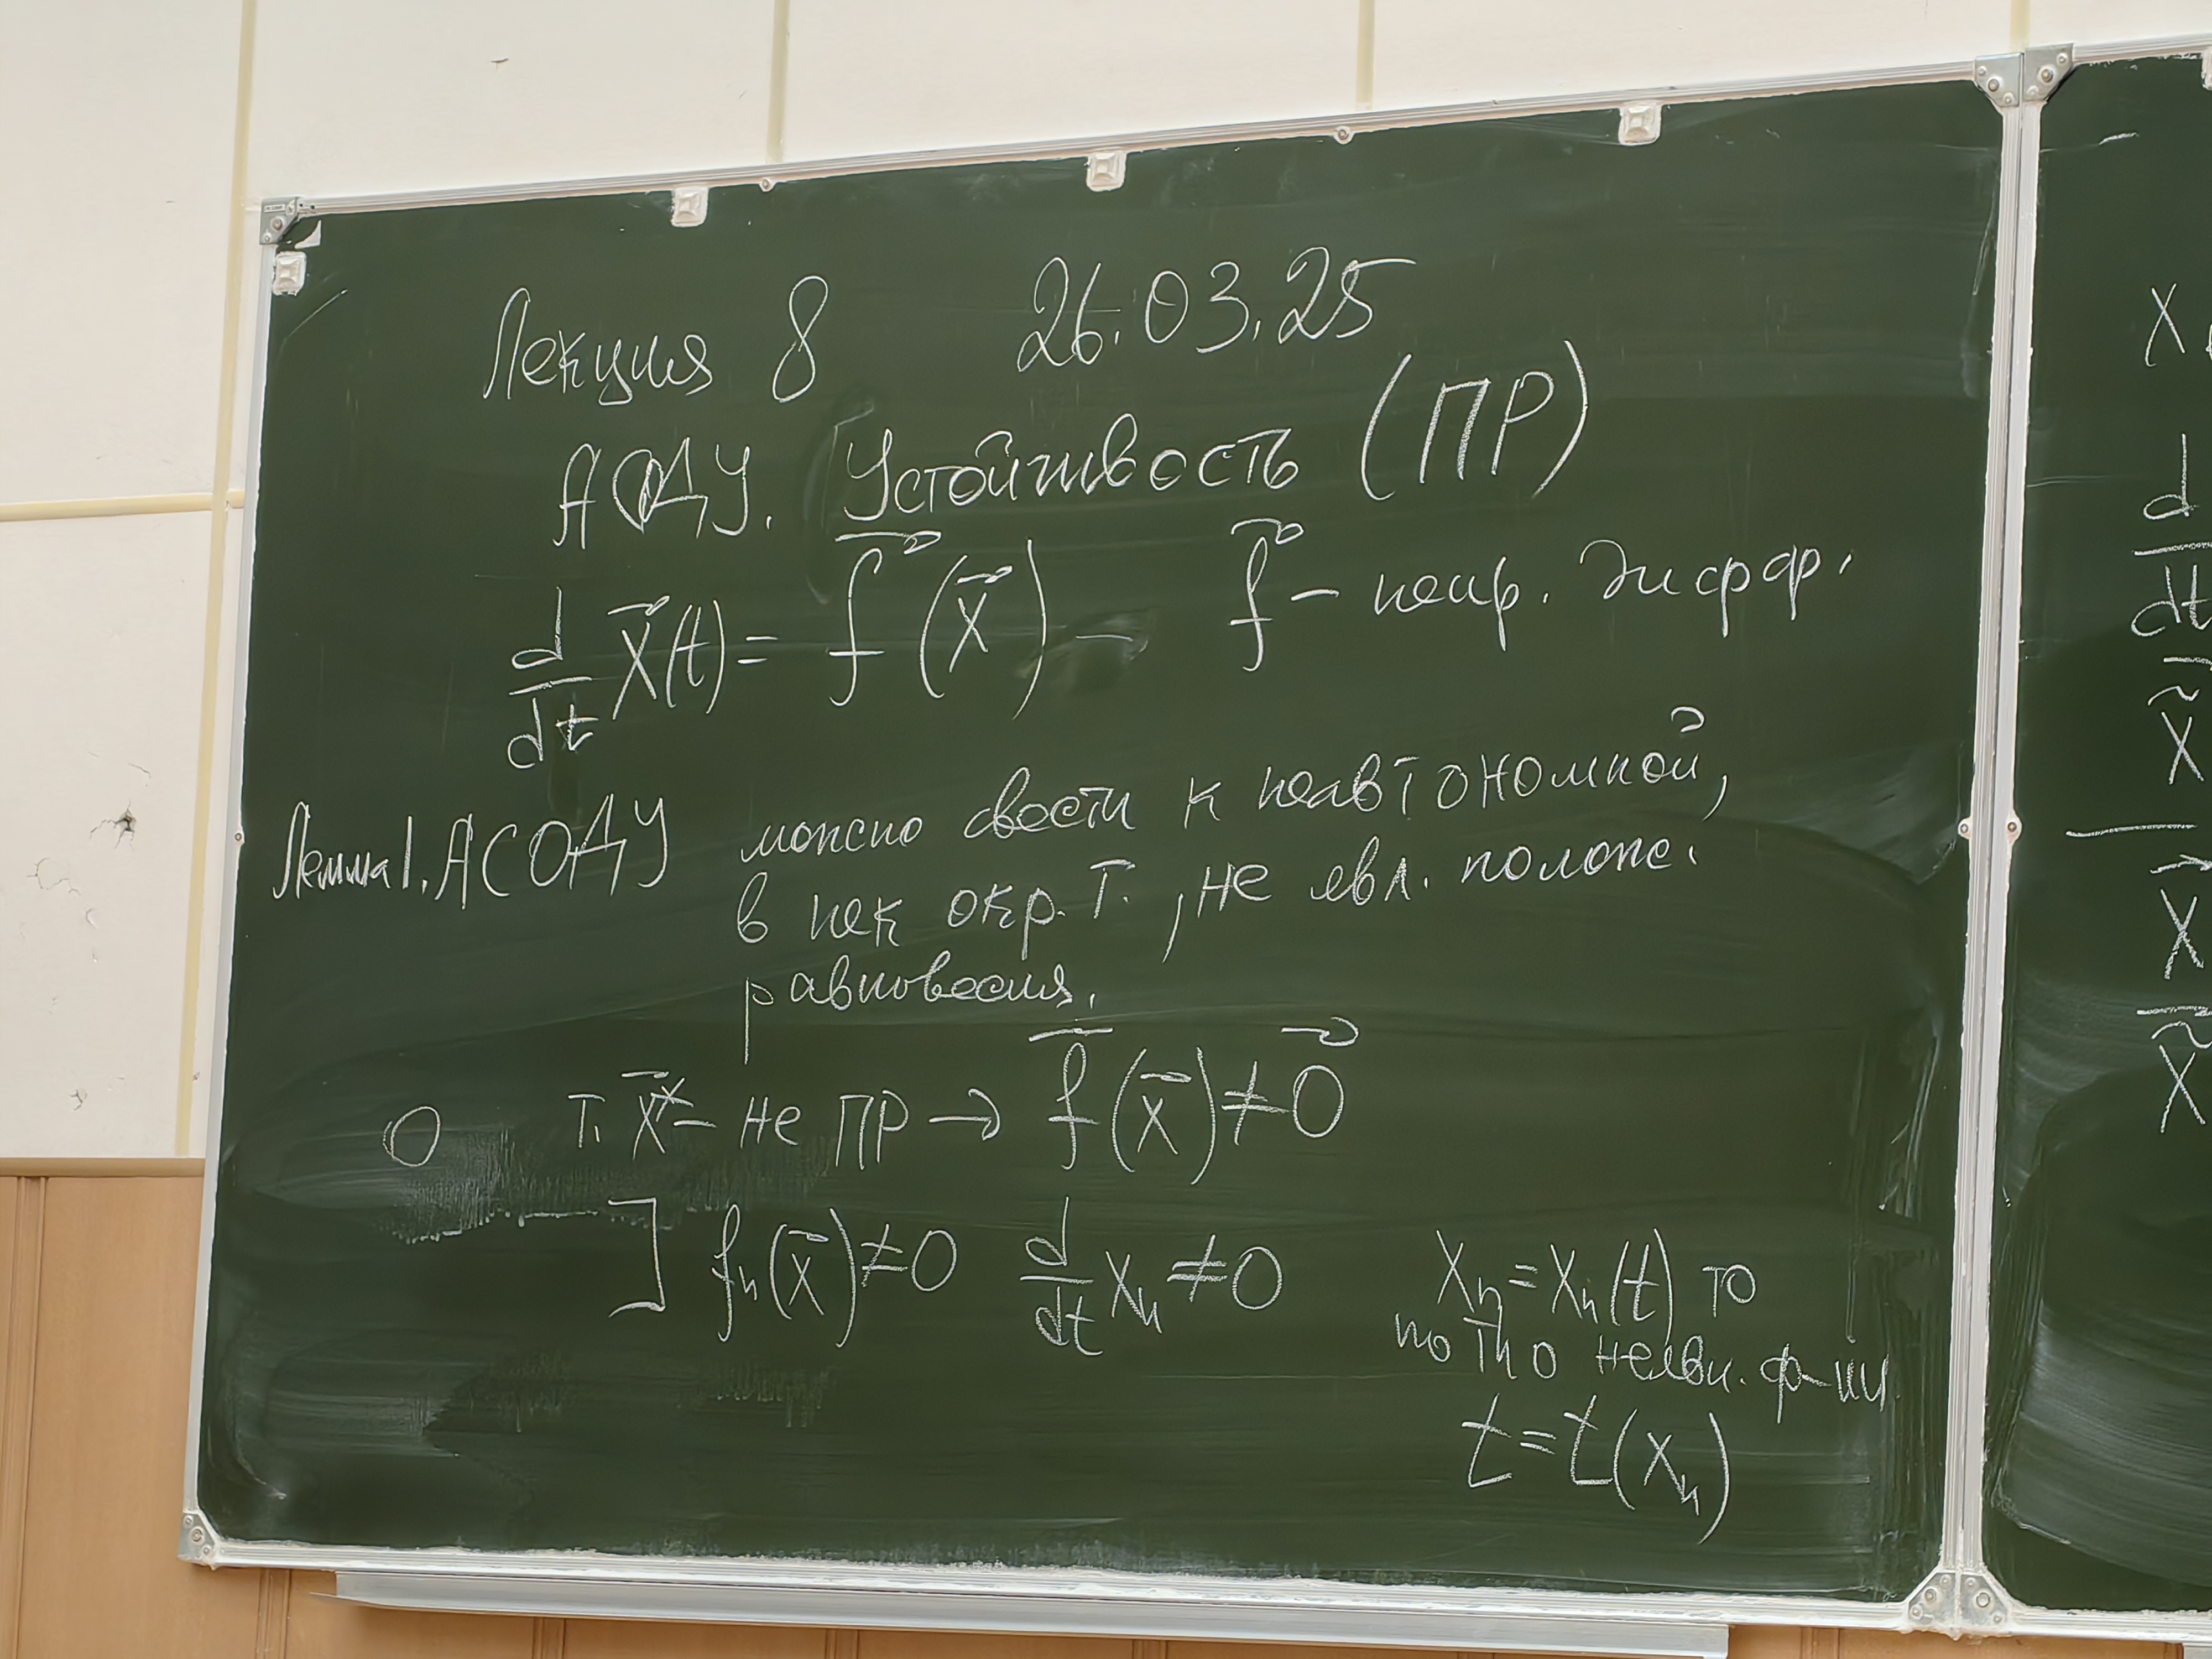 Лекция 8 26.03.25
АОДУ. Устойчивость (ПР)
d/dt x⃗(t) = f⃗(x⃗) — f⃗ – непр. дифф.
Лемма 1. АСОДУ можно свести к неавтономной,
в нек окр. т., не явл. полож.
равновесия.
О т. x⃗* – не ПР → f⃗(x⃗) ≠ 0⃗
] fₙ(x⃗) ≠ 0 d/dt xₙ ≠ 0 xₙ = xₙ(t) то
по т о неявн. ф-ии
t = t(xₙ)
x
d
dt
x̃
x⃗
x̃